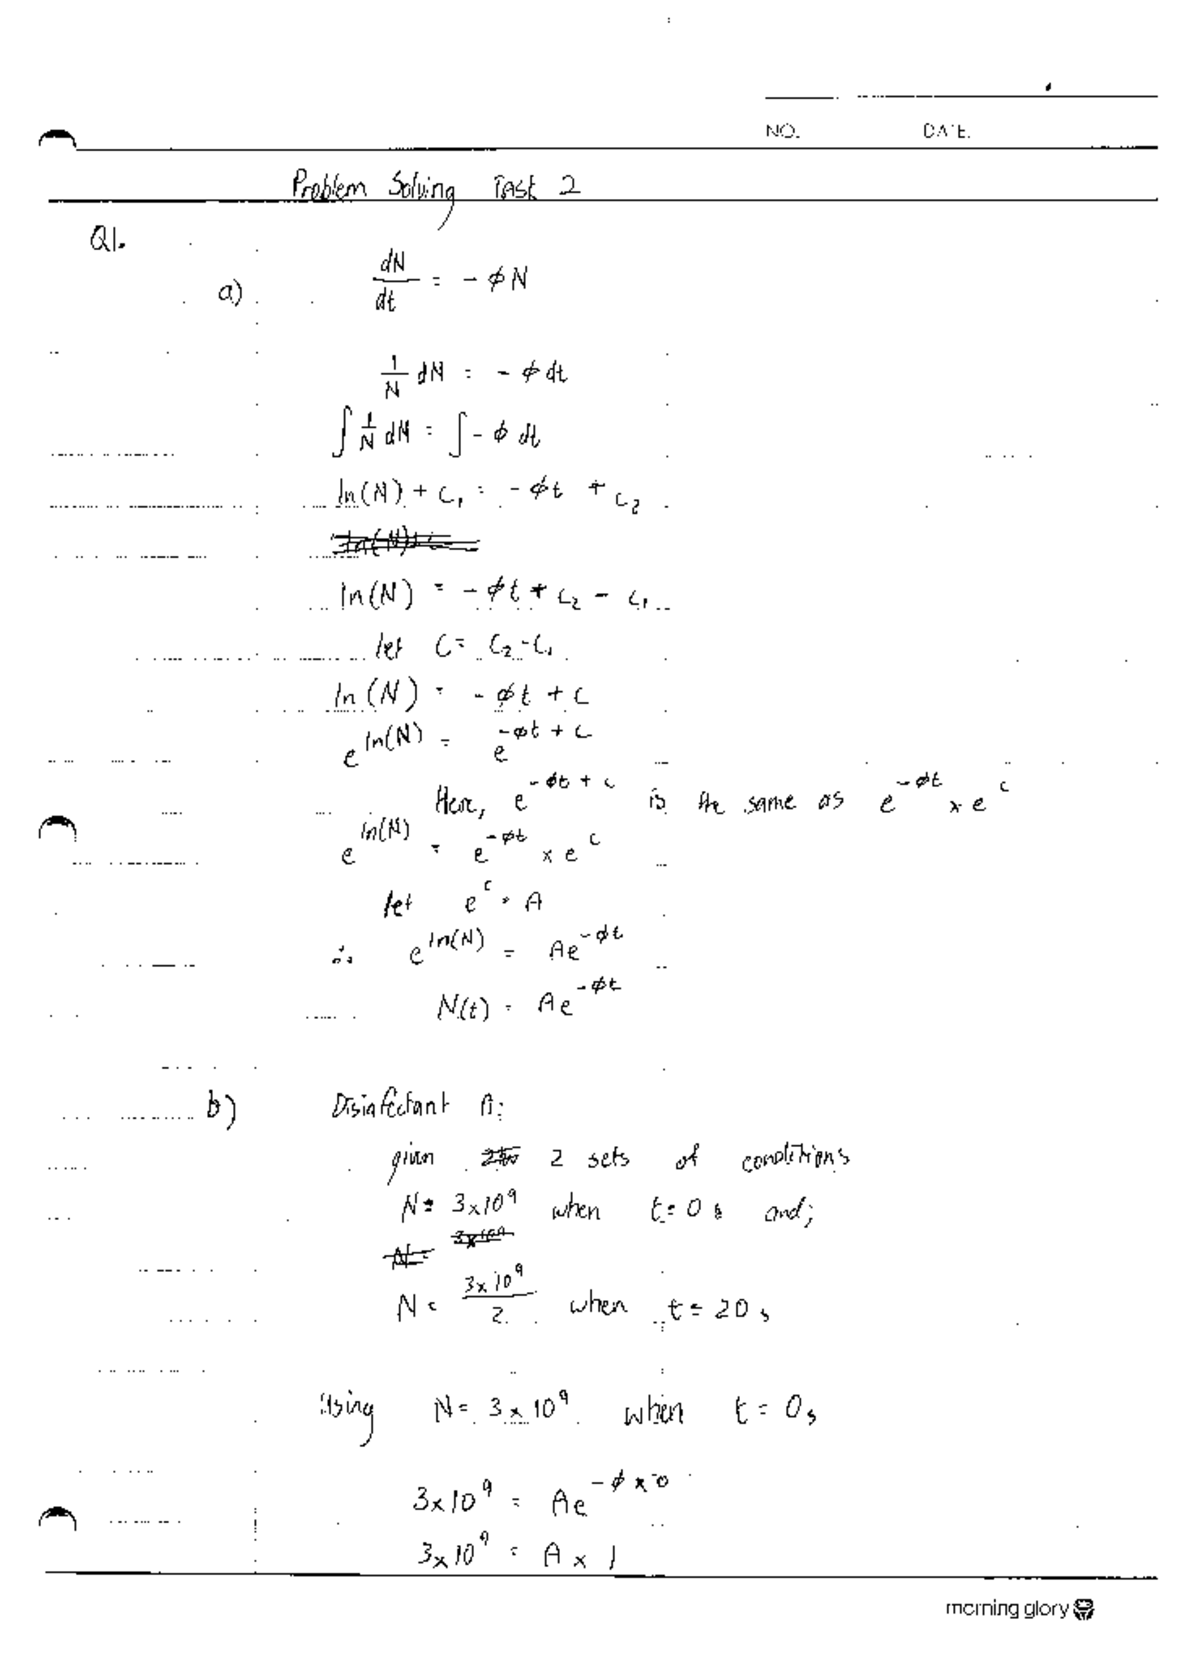 NO. DATE.
Problem Solving Task 2
Q1.
a) dN/dt = - φN
1/N dN = - φ dt
∫ 1/N dN = ∫ - φ dt
ln(N) + c₁ = - φt + c₂
ln(N) = - φt + c₂ - c₁
let C = c₂ - c₁
ln(N) = - φt + c
e^ln(N) = e^-φt + c
Here, e^-φt + c is the same as e^-φt × e^c
e^ln(N) = e^-φt × e^c
let e^c = A
∴ e^ln(N) = Ae^-φt
N(t) = Ae^-φt
b) Disinfectant A:
given 2 sets of conditions
N = 3×10⁹ when t = 0 s and;
N = 3×10⁹/2 when t = 20 s
Using N = 3×10⁹ when t = 0s
3×10⁹ = Ae^-φ×0
3×10⁹ = A × 1
morning glory